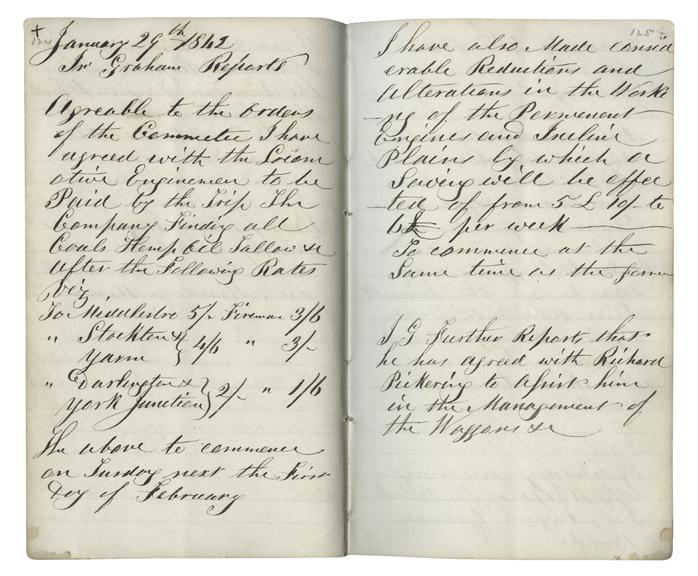 124
January 29th 1842
Jn Graham Reports
Agreable to the Orders
of the Committee I have
agreed with the Locom
otive Enginemen to be
Paid by the Trip The
Company Finding all
Coals Hemp Oil Tallow &c
after the Following Rates
Viz
To Middlesbro 5/- Fireman 3/6
" Stockton &
Yarm } 4/6 " 3/-
" Darlington &
York Junction } 2/- " 1/6
The above to commence
on Tuesday next the First
Day of February
125
I have also Made consid
erable Reductions and
alterations in the Worki
-ng of the Permenent
Engines and Incline
Plains by which a
Saving will be effec
-ted of from 5£ 10/- to
per week
To commence at the
Same time as the former
J G Further Reports that
he has agreed with Richard
Pickering to assist him
in the Management of
the Waggons &c